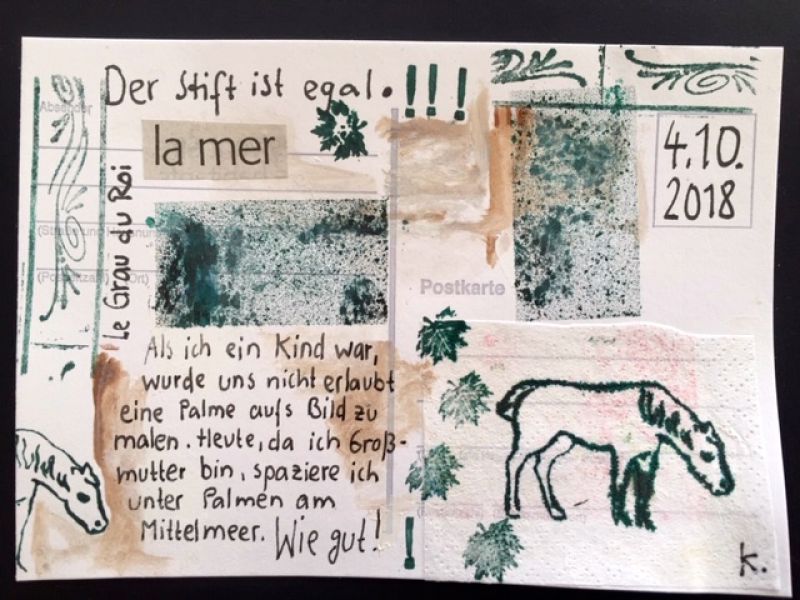 Der Stift ist egal. !!!
Absender
la mer
4.10.
2018
Le Grau du Roi
Postkarte
Als ich ein Kind war,
wurde uns nicht erlaubt
eine Palme aufs Bild zu
malen. Heute, da ich Groß-
mutter bin, spaziere ich
unter Palmen am
Mittelmeer. Wie gut!
!
K.